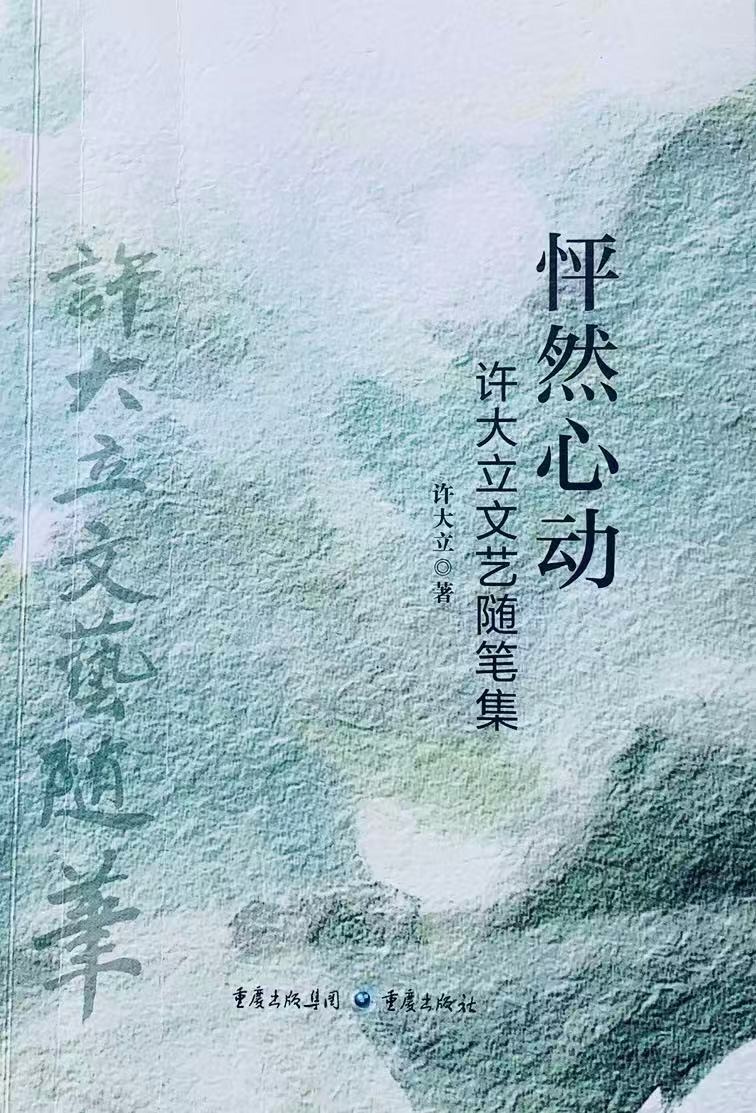 怦然心动
许大立文艺随笔集
许大立◎著
許大立文藝随筆
重庆出版集团 重庆出版社